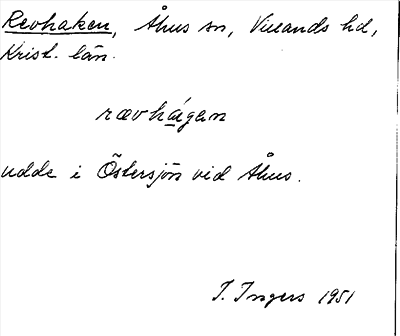 Revhaken, Åhus sn, Villands hd,
Krist. län.
rævhágan
udde i Östersjön vid Åhus.
I. Ingers 1951